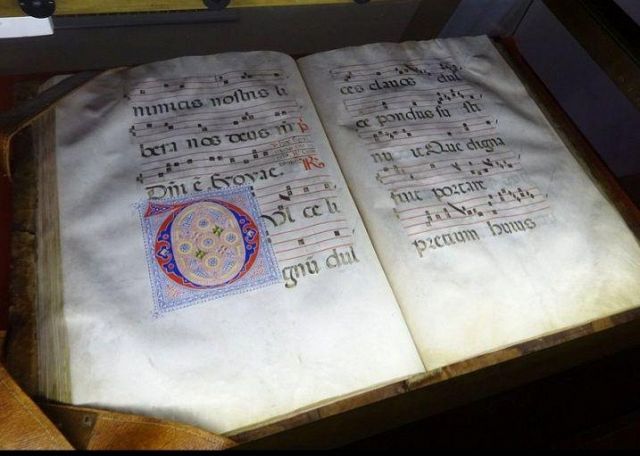 nimicis nostris li
bera nos deus
Dul ce li
gnū dul
ces clauos dul
ce pondus su sti
nu it. Que digna
fuit portare
precium huius